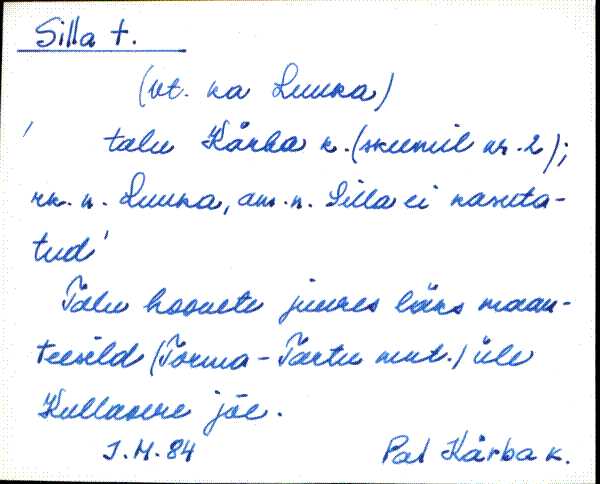 Silla t.
(vt. ka Luuka)
' talu Kärba k. (skeemil nr. 2);
rk. n. Luuka, am. n. Silla ei kasuta-
tud'
Talu hoonete juures läks maan-
teesild (Torma - Tartu mnt.) üle
Kullavere jõe.
J. M. 84 Pal Kärba k.